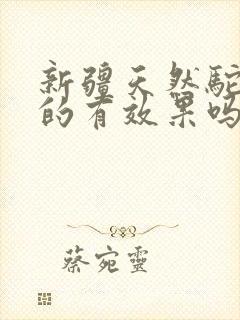 新疆天然駝
的有效果吗
蔡宛靈